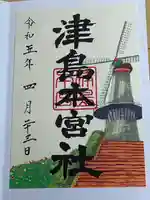 津島本宮社
令和五年 四月二十三日